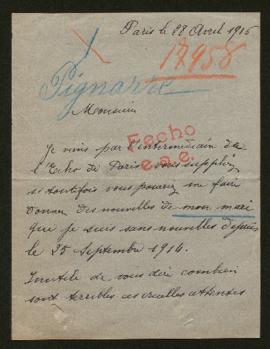 Paris le 28 Avril 1915
17958
Pignard
Monsieur
Je viens par l'intermédiaire de
l'Echo de Paris vous supplier
si toutefois vous pouvez me faire
donner des nouvelles de mon mari
que je suis sans nouvelles depuis
le 25 Septembre 1914.
Inutile de vous dire combien
sont terribles ces cruelles attentes